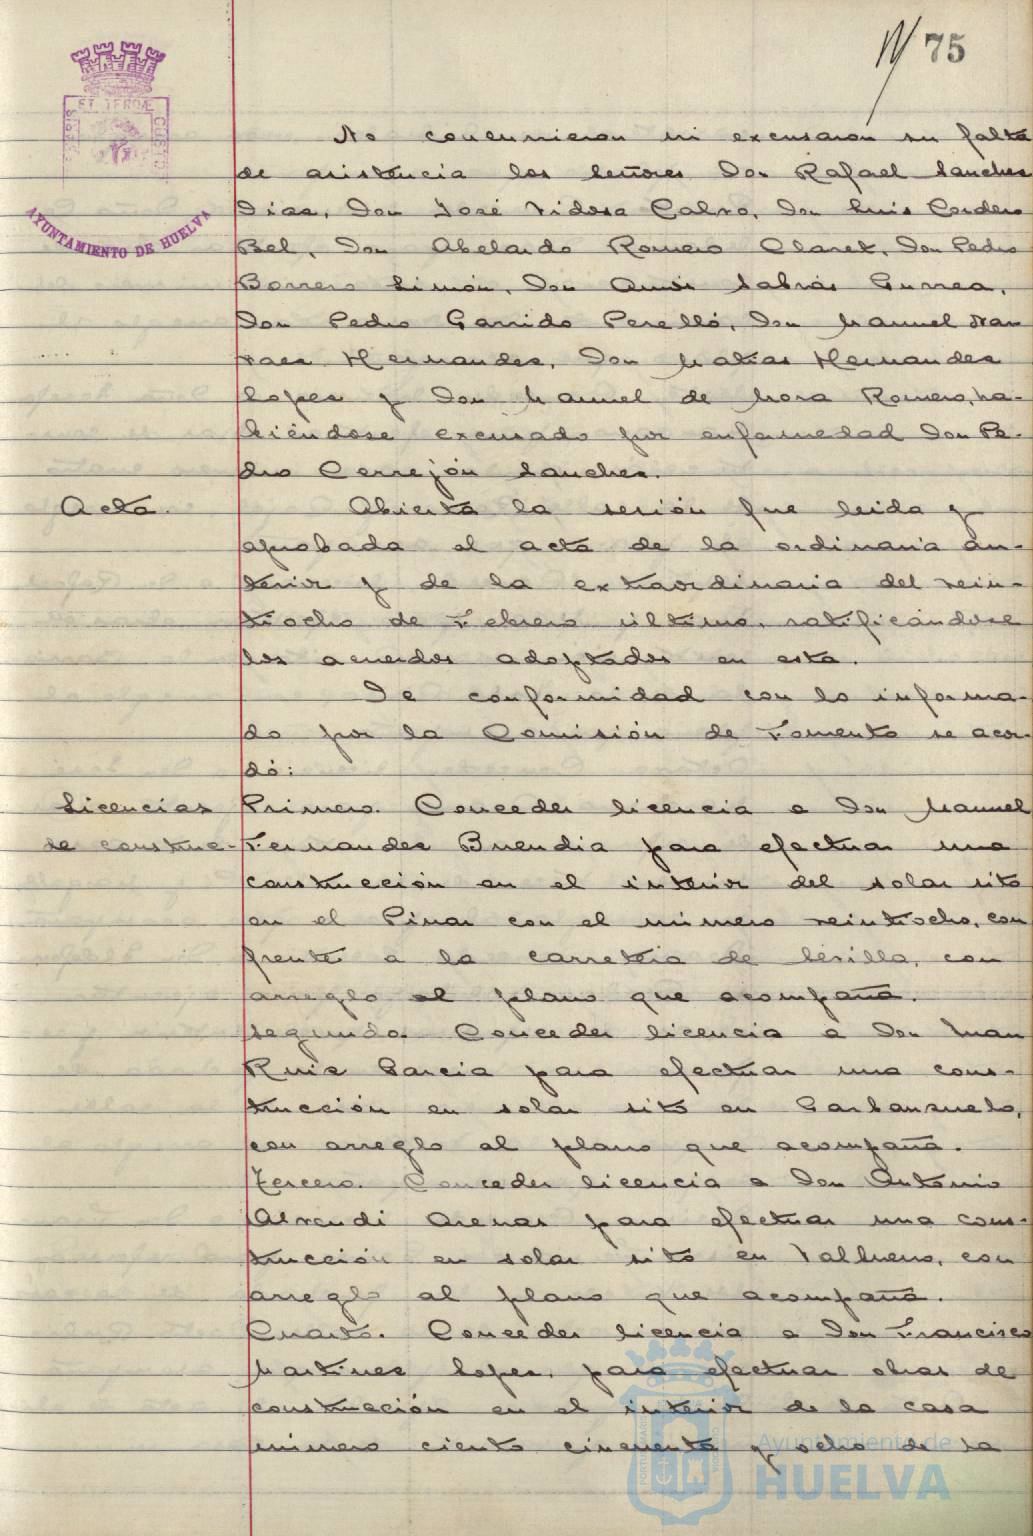 75
PORTUS MARIS ET TERRÆ CUSTODIA
AYUNTAMIENTO DE HUELVA
No concurrieron ni excusaron su falta
de asistencia los señores Don Rafael Sanchez
Diaz, Don José Vidosa Calvo, Don Luis Cordero
Bel, Don Abelardo Romero Claret, Don Pedro
Borrero Limón, Don Amós Sabrás Gurrea,
Don Pedro Garrido Perelló, Don Manuel
Hernandez, Don Matias Hernandez
Lopez y Don Manuel de Mora Romero, ha-
biéndose excusado por enfermedad Don Pe-
dro Cerrejón Sanchez.
Acta.
Abierta la sesión fue leida y
aprobada el acta de la ordinaria an-
terior y de la extraordinaria del vein-
tiocho de Febrero último, ratificándose
los acuerdos adoptados en esta.
De conformidad con lo informa-
do por la Comisión de Fomento se acor-
dó:
Licencias
de construc-
Primero. Conceder licencia a Don Manuel
Fernandez Buendia para efectuar una
construcción en el interior del solar sito
en el Pinar con el número veintiocho, con
frente a la carretera de Sevilla, con
arreglo al plano que acompaña.
Segundo. Conceder licencia a Don Juan
Ruiz Garcia para efectuar una cons-
trucción en solar sito en Garbanzuelo,
con arreglo al plano que acompaña.
Tercero. Conceder licencia a Don Antonio
Arenas para efectuar una cons-
trucción en solar sito en Valbueno, con
arreglo al plano que acompaña.
Cuarto. Conceder licencia a Don Francisco
Martinez Lopez, para efectuar obras de
construcción en el interior de la casa
número ciento cincuenta y ocho de la
Ayuntamiento de
HUELVA